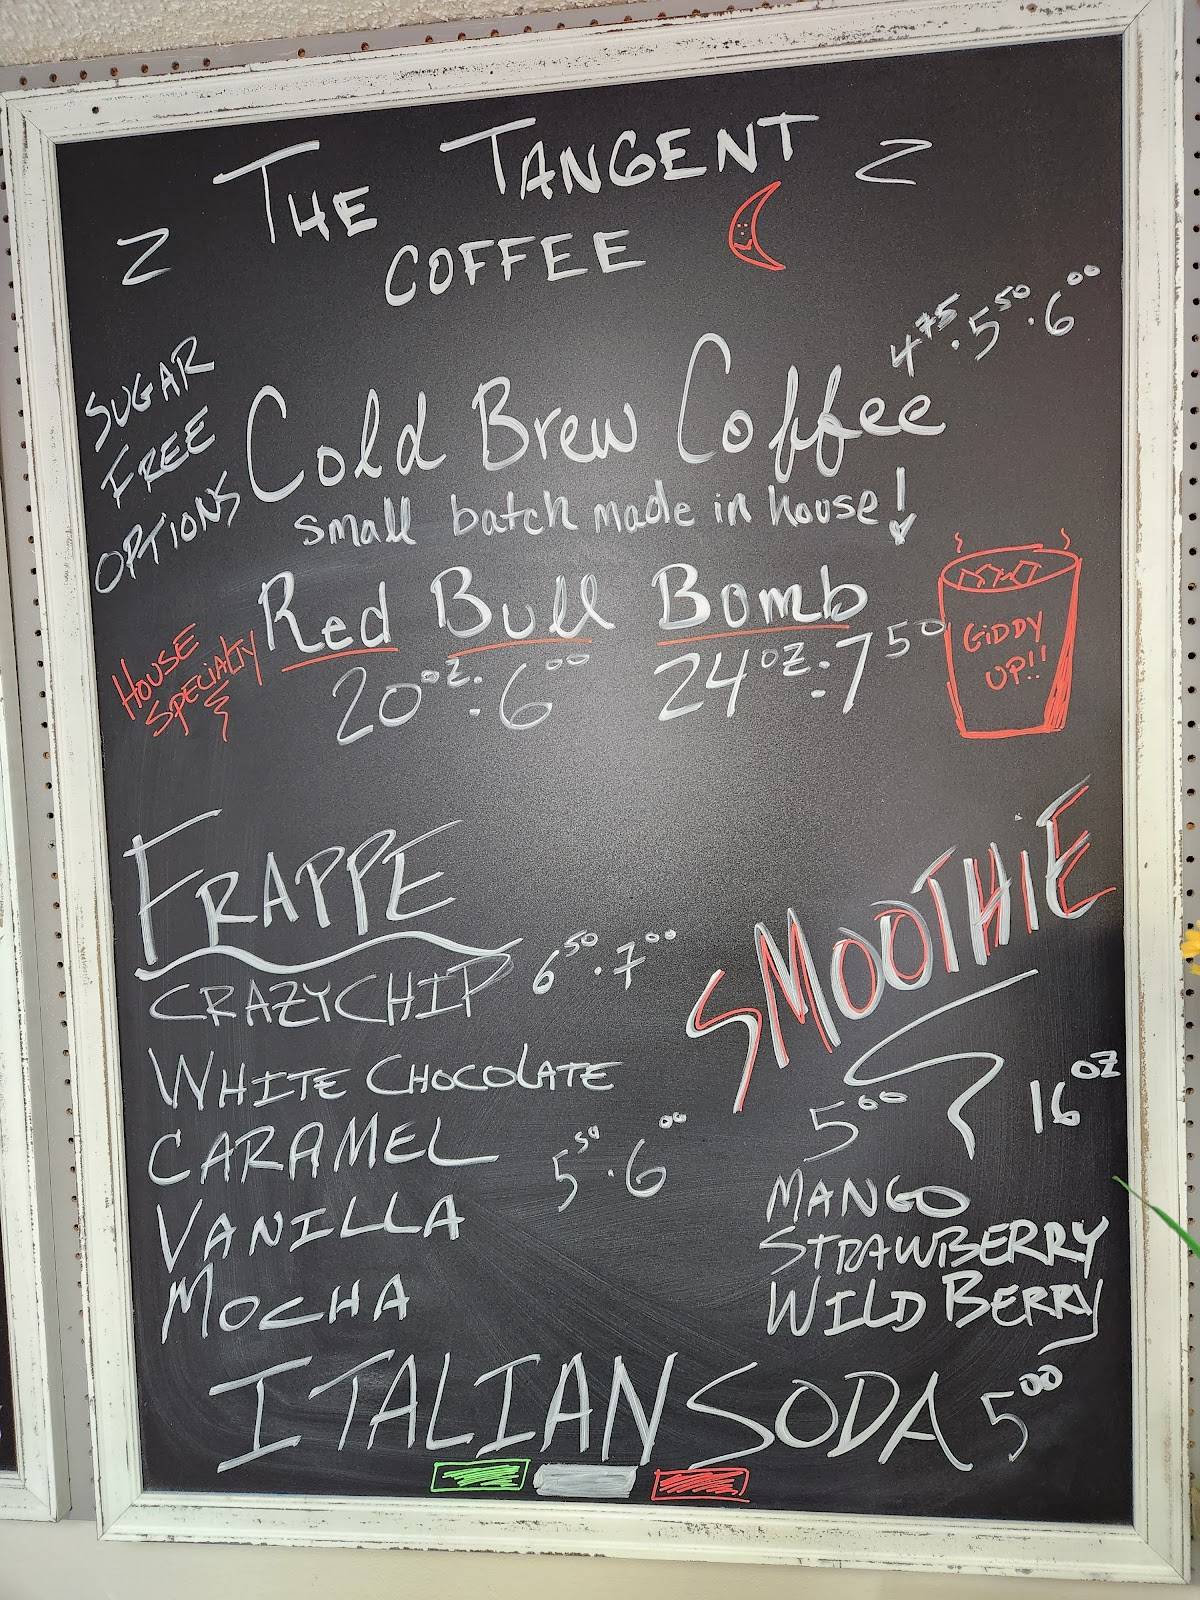 THE TANGENT
COFFEE
SUGAR
FREE
OPTIONS
Cold Brew Coffee 4.75 . 5.50 . 6.00
small batch made in house!
HOUSE
SPECIALTY
Red Bull Bomb
20oz. 6.00 24oz. 7.50
GIDDY
UP!!
FRAPPE
CRAZYCHIP 6.50 . 7.00
WHITE CHOCOLATE
CARAMEL 5.50 . 6.00
VANILLA
MOCHA
SMOOTHiE
5.00 16oz
MANGO
STRAWBERRY
WILD BERRY
ITALIAN SODA 5.00